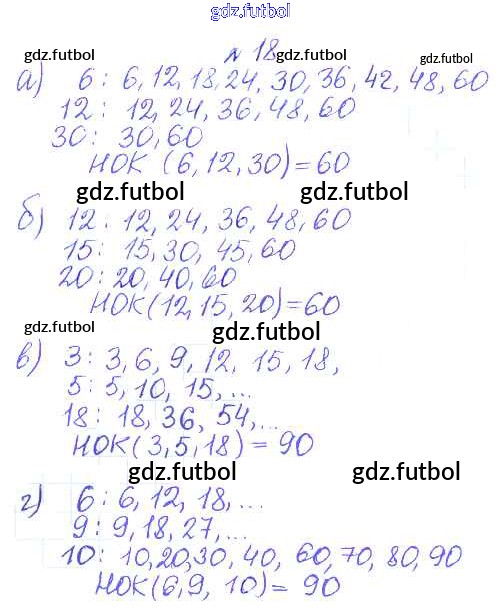 gdz.futbol
№ 18
gdz.futbol gdz.futbol gdz.futbol
а) 6: 6, 12, 18, 24, 30, 36, 42, 48, 60
12: 12, 24, 36, 48, 60
30: 30, 60
НОК (6, 12, 30) = 60
gdz.futbol gdz.futbol
б) 12: 12, 24, 36, 48, 60
15: 15, 30, 45, 60
20: 20, 40, 60
НОК (12, 15, 20) = 60
gdz.futbol gdz.futbol
в) 3: 3, 6, 9, 12, 15, 18,
5: 5, 10, 15, ...
18: 18, 36, 54, ...
НОК (3, 5, 18) = 90
gdz.futbol gdz.futbol
г) 6: 6, 12, 18, ...
9: 9, 18, 27, ...
10: 10, 20, 30, 40, 60, 70, 80, 90
НОК (6, 9, 10) = 90
gdz.futbol